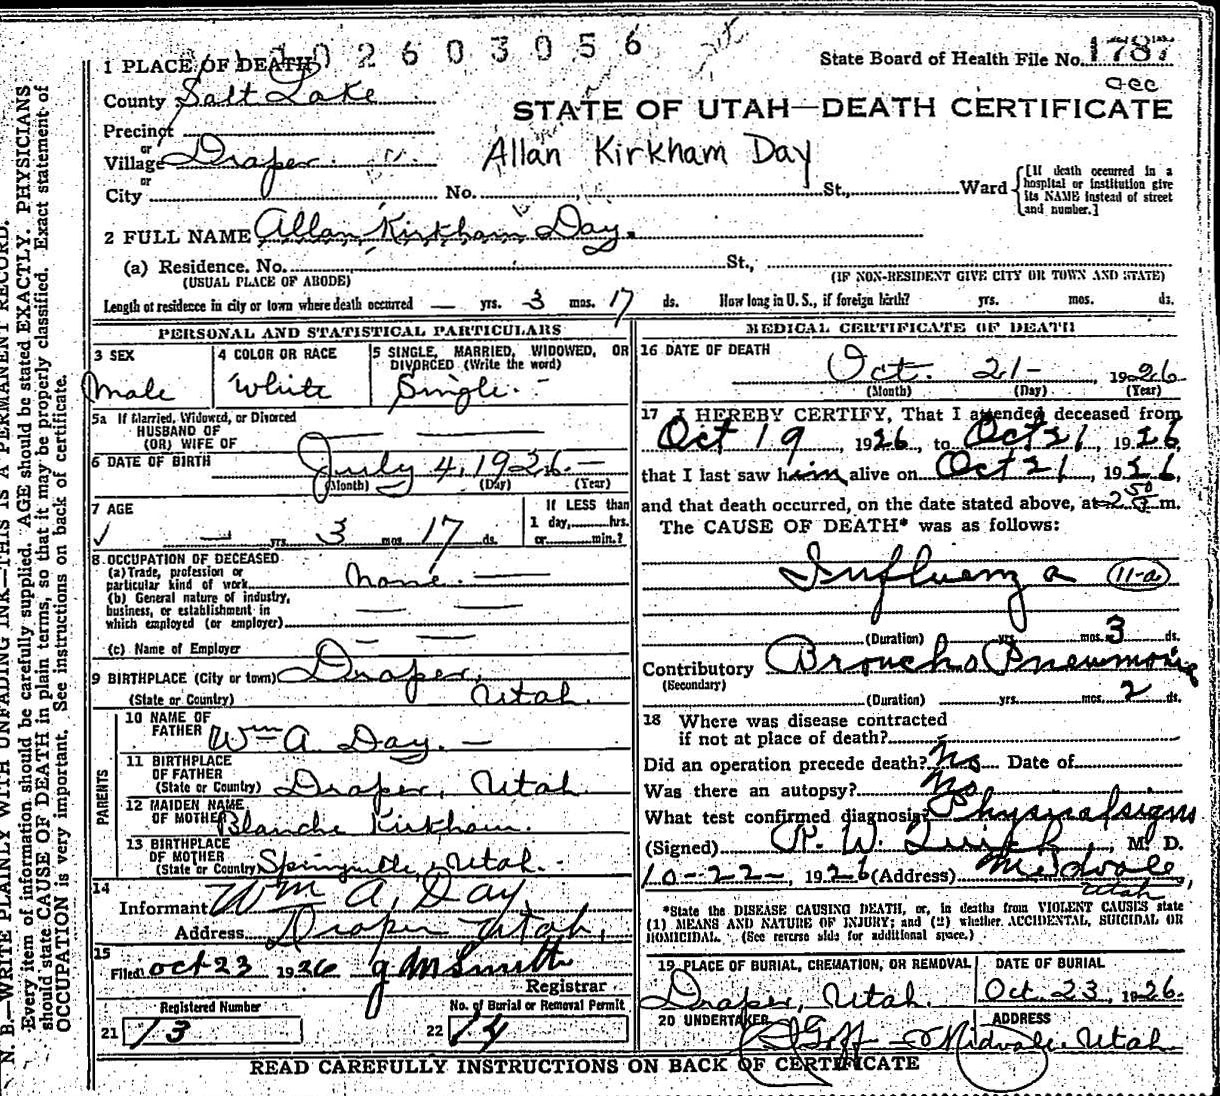 2 6 0 3 0 5 6
State Board of Health File No. 1787
1 PLACE OF DEATH
County Salt Lake
STATE OF UTAH—DEATH CERTIFICATE
Precinct
or
Village Draper
Allan Kirkham Day
or
City No. St., Ward
[If death occurred in a
hospital or institution give
its NAME instead of street
and number.]
2 FULL NAME Allan Kirkham Day.
(a) Residence. No. St.,
(USUAL PLACE OF ABODE) (IF NON-RESIDENT GIVE CITY OR TOWN AND STATE)
Length of residence in city or town where death occurred — yrs. 3 mos. 17 ds. How long in U. S., if foreign birth? yrs. mos. ds.
PERSONAL AND STATISTICAL PARTICULARS
3 SEX 4 COLOR OR RACE 5 SINGLE, MARRIED, WIDOWED, OR
DIVORCED (Write the word)
Male White Single. —
5a If Married, Widowed, or Divorced
HUSBAND OF
(OR) WIFE OF
6 DATE OF BIRTH July 4, 1926. —
(Month) (Day) (Year)
7 AGE If LESS than
1 day, hrs.
— yrs. 3 mos. 17 ds. or min.?
8 OCCUPATION OF DECEASED
(a) Trade, profession or
particular kind of work None.
(b) General nature of industry,
business, or establishment in
which employed (or employer)
(c) Name of Employer
9 BIRTHPLACE (City or town) Draper,
(State or Country) Utah.
PARENTS
10 NAME OF
FATHER Wm A. Day. —
11 BIRTHPLACE
OF FATHER
(State or Country) Draper, Utah
12 MAIDEN NAME
OF MOTHER Blanche Kirkham.
13 BIRTHPLACE
OF MOTHER
(State or Country) Springville, Utah. -
14
Informant Wm A. Day,
Address Draper Utah,
15
Filed Oct 23 1926 J M Smith
Registrar
Registered Number No. of Burial or Removal Permit
21 13 22 14
MEDICAL CERTIFICATE OF DEATH
16 DATE OF DEATH
Oct. 21- , 1926
(Month) (Day) (Year)
17 I HEREBY CERTIFY, That I attended deceased from
Oct 19 1926 to Oct 21, 1926,
that I last saw him alive on Oct 21, 1926,
and that death occurred, on the date stated above, at 2 50 m.
The CAUSE OF DEATH* was as follows:
Influenza 11-a
(Duration) yrs. mos. 3 ds.
Contributory Broncho Pneumonia
(Secondary)
(Duration) yrs. mos. 2 ds.
18 Where was disease contracted
if not at place of death?
Did an operation precede death? No Date of
Was there an autopsy? No
What test confirmed diagnosis? Physical signs
(Signed) W. , M. D.
10-22-, 1926 (Address) Midvale,
Utah
*State the DISEASE CAUSING DEATH, or, in deaths from VIOLENT CAUSES state
(1) MEANS AND NATURE OF INJURY; and (2) whether ACCIDENTAL, SUICIDAL OR
HOMICIDAL. (See reverse side for additional space.)
19 PLACE OF BURIAL, CREMATION, OR REMOVAL DATE OF BURIAL
Draper, Utah. Oct. 23, 1926.
20 UNDERTAKER ADDRESS
Goff Midvale Utah.
READ CAREFULLY INSTRUCTIONS ON BACK OF CERTIFICATE
N. B.—WRITE PLAINLY WITH UNFADING INK—THIS IS A PERMANENT RECORD.
Every item of information should be carefully supplied. AGE should be stated EXACTLY. PHYSICIANS
should state CAUSE OF DEATH in plain terms, so that it may be properly classified. Exact statement of
OCCUPATION is very important. See instructions on back of certificate.